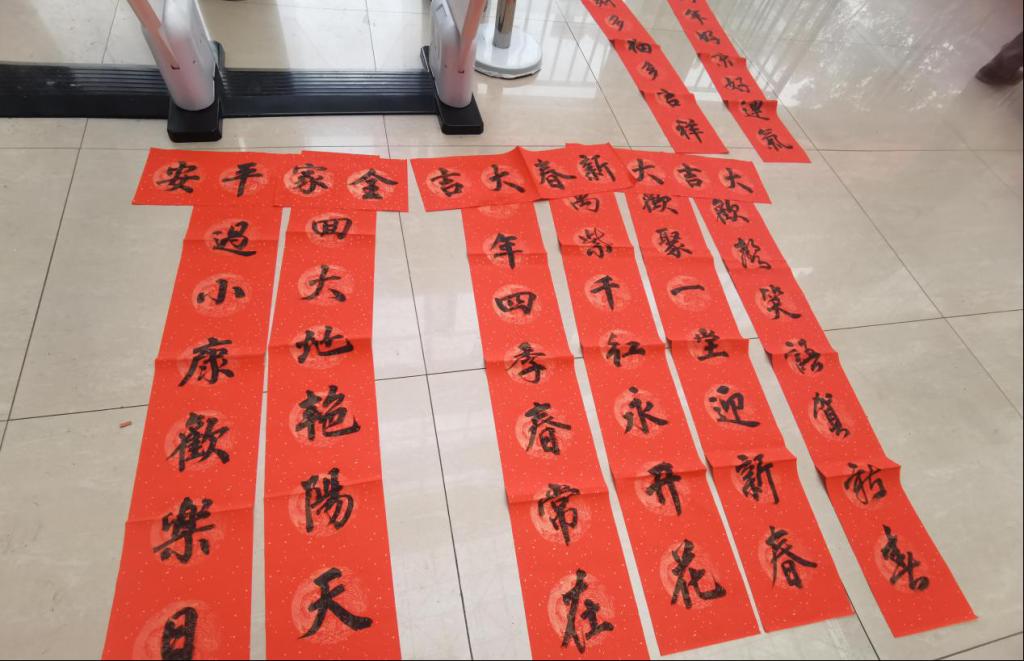 年好景好運氣
多福多吉祥
全家平安
新春大吉
大吉大
過小康歡樂日
回大地艷陽天
年四季春常在
萬紫千紅永开花
歡聚一堂迎新春
歡聲笑語賀新春